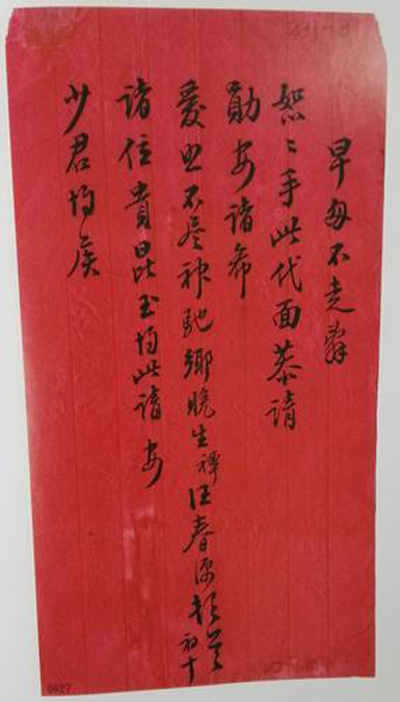 早 不走辭
怱〻手此代面恭請
勛安諸希
愛照不尽神馳鄉晚生禫汪春源頓首
初十
諸位貴昆玉均此請安
少君均候
0627